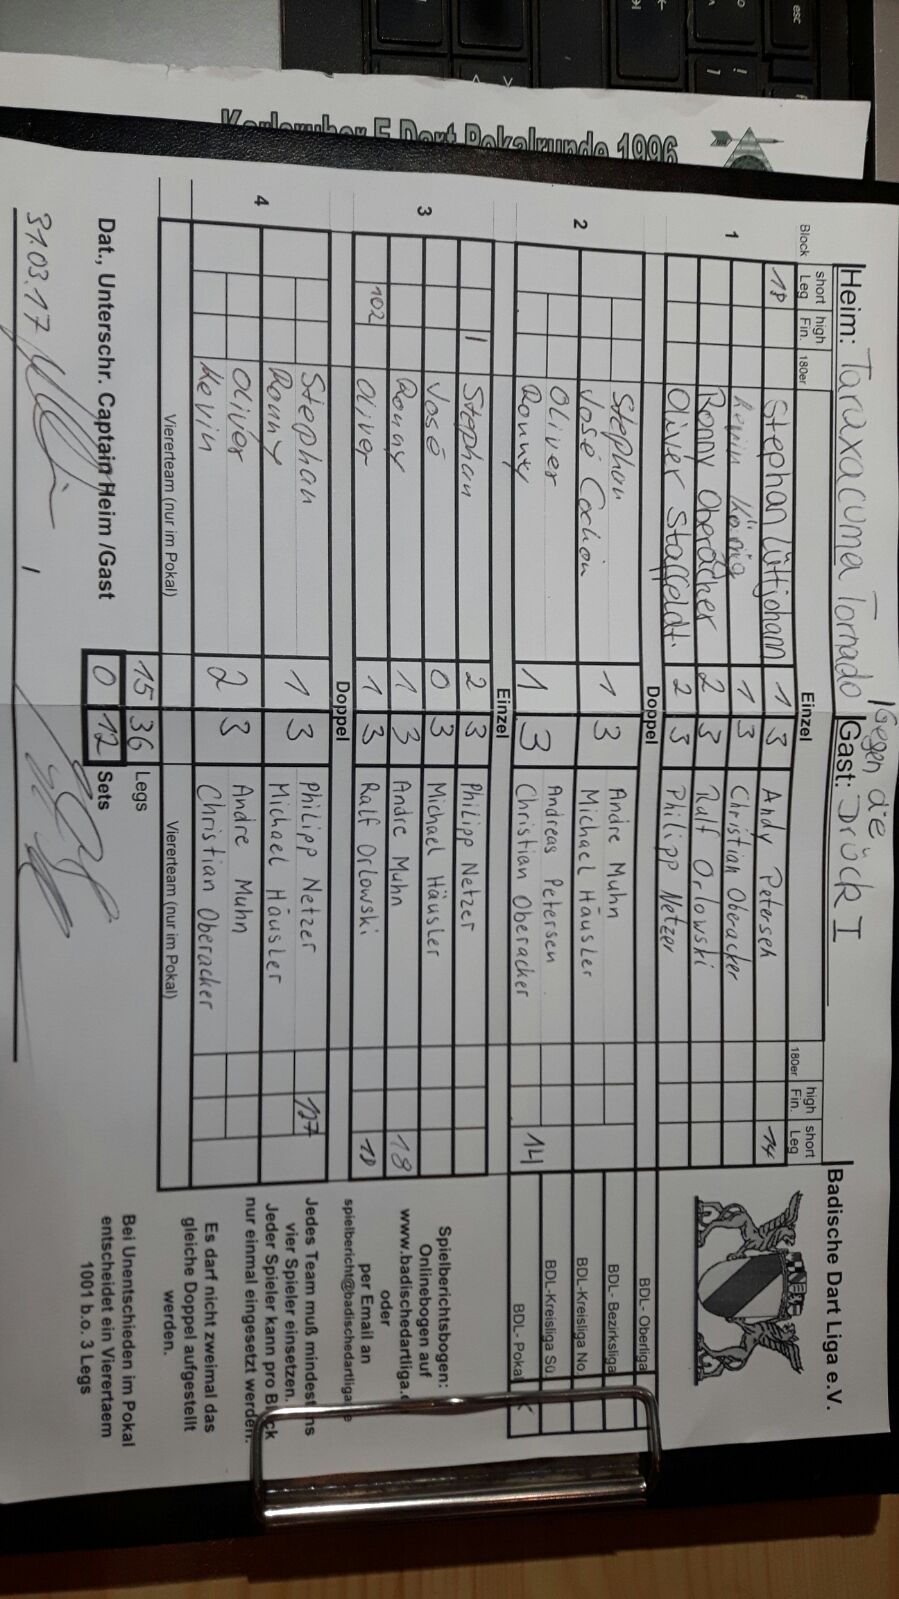 esc
Karlsruher E-Dart Pokalrunde 1996
Heim: Taraxacuma Tornado
Gegen die
Gast: Drück I
Badische Dart Liga e.V.
Block
short Leg
high Fin.
180er
Einzel
180er
high Fin.
short Leg
1
18 Stephan Lüttjohann 1 3 Andy Petersen 14
Kevin König 1 3 Christian Oberacker
Ronny Oberacker 2 3 Ralf Orlowski
Oliver Staffeldt 2 3 Philipp Netzer
Doppel
2
Stephan
José Cochon 1 3 Andre Muhn
Michael Häusler
Oliver
Ronny 1 3 Andreas Petersen
Christian Oberacker 14
Einzel
3
1 Stephan 2 3 Philipp Netzer
José 0 3 Michael Häusler
Ronny 1 3 Andre Muhn 18
102 Oliver 1 3 Ralf Orlowski
Doppel
4
Stephan
Ronny 1 3 Philipp Netzer 127
Michael Häusler
Oliver
Kevin 2 3 Andre Muhn
Christian Oberacker
Viererteam (nur im Pokal)
Viererteam (nur im Pokal)
15 36 Legs
0 12 Sets
Dat., Unterschr. Captain Heim /Gast
31.03.17
BDL- Oberliga
BDL- Bezirksliga
BDL-Kreisliga No.
BDL-Kreisliga Sü.
BDL- Pokal
Spielberichtsbogen:
Onlinebogen auf
www.badischedartliga.
oder
per Email an
spielbericht@badischedartliga
Jedes Team muß mindestens
vier Spieler einsetzen.
Jeder Spieler kann pro Block
nur einmal eingesetzt werden.
Es darf nicht zweimal das
gleiche Doppel aufgestellt
werden.
Bei Unentschieden im Pokal
entscheidet ein Vierertaem
1001 b.o. 3 Legs